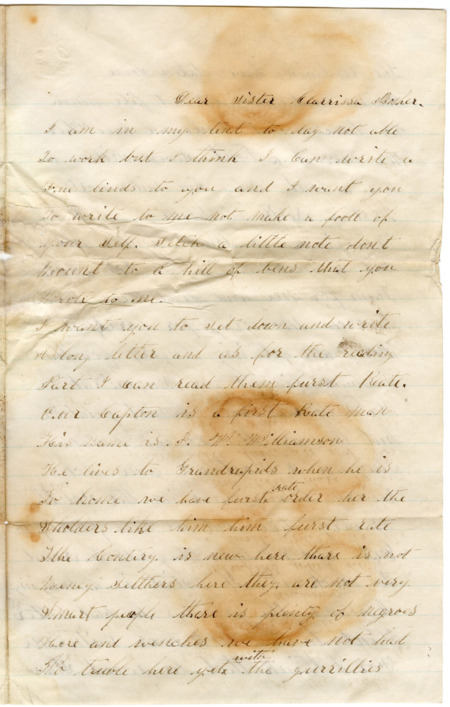 Dear Sister Clarrissa Boher.
I am in my tent to day not able
To work but I think I Can write a
few linds to you and I want you
To write to me not make a fooll of
your Self. Setch a little note dont
amount to a hill of bens that you
Wrote to me.
I want you to set down and write
A long letter and as for the reading
Part I Can read them furst Rate.
Our Capton is a first Rate man
His name is J. W. Williamson
He lives to Grandrapids when he is
To home we have furst rate order her the
Sholders like him him furst rate
The Contery is new here thare is not
meny Setlhers here they are not very
Smart people thare is plenty of negroes
Here and wenches we have not had
No truble here yete with the gurrillies